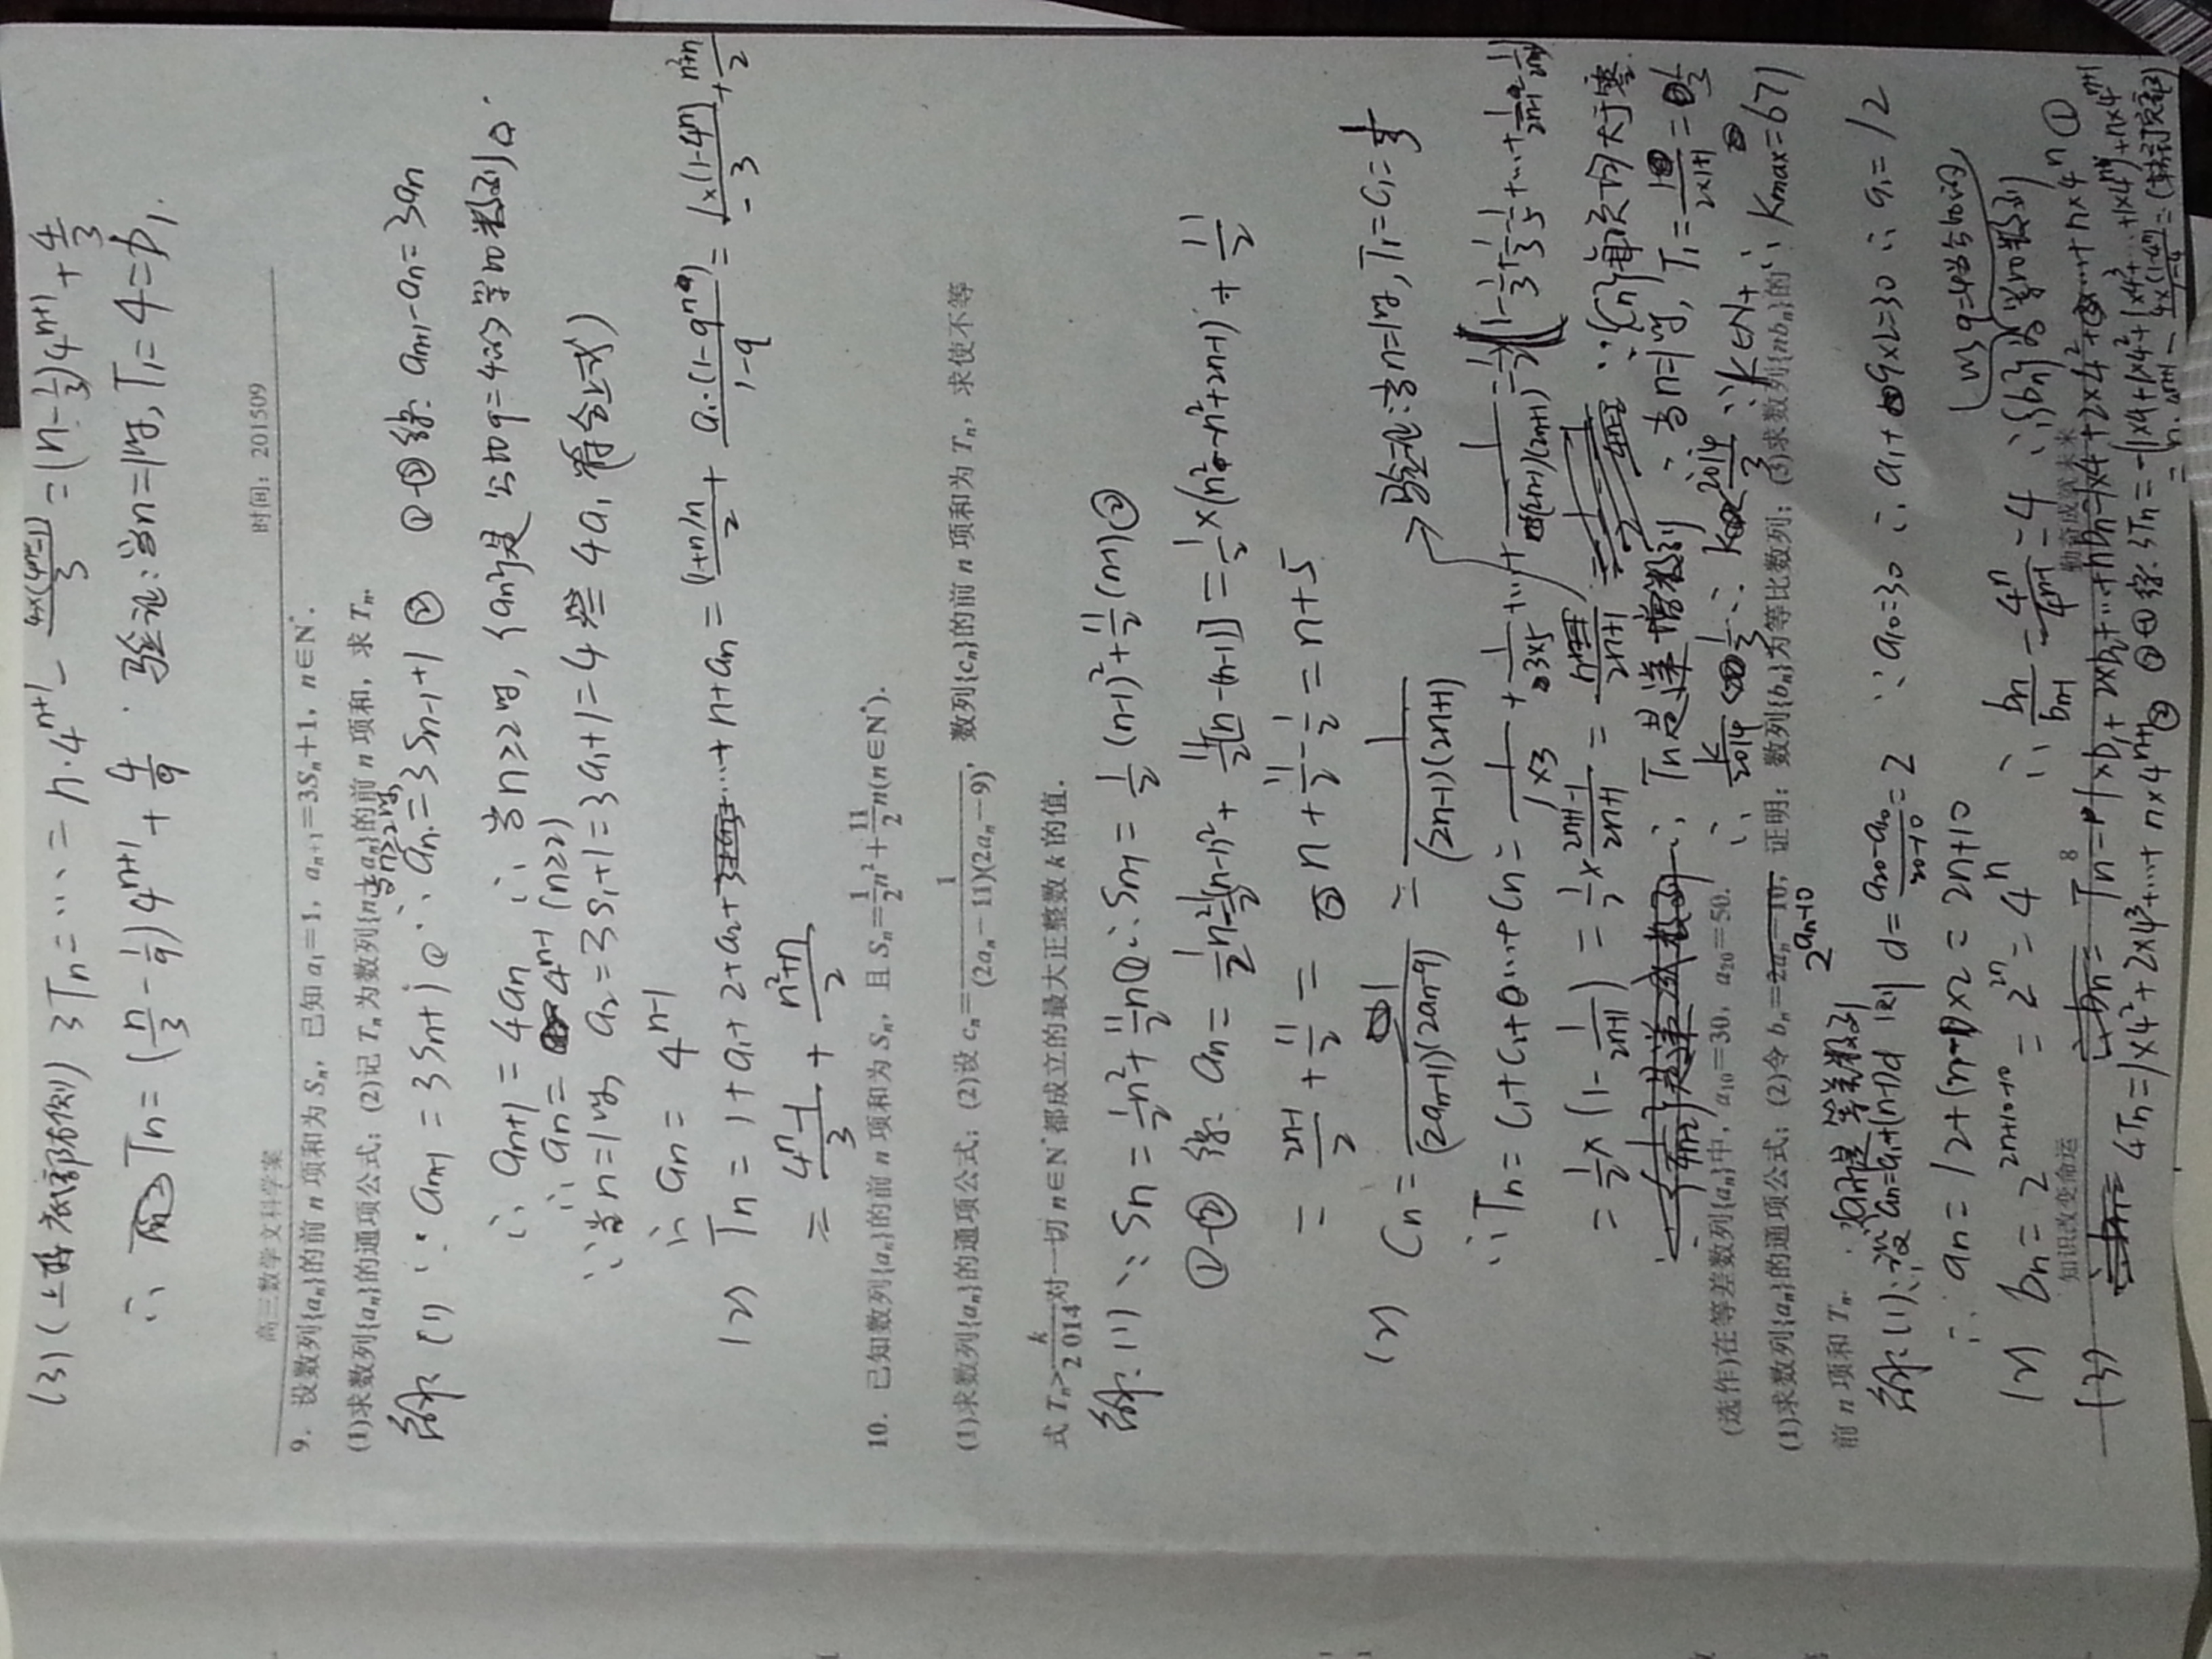 (3)(上接底部右侧) 3Tn=…=n·4^{n+1}-\frac{4×(4^n-1)}{3}=(n-\frac{1}{3})4^{n+1}+\frac{4}{3}
∴ Tn=(\frac{n}{3}-\frac{1}{9})4^{n+1}+\frac{4}{9} 验证:当n=1时,T₁=4=b₁.
高三数学文科学案 时间：201509
9．设数列{aₙ}的前 n 项和为 Sₙ，已知 a₁=1，aₙ₊₁=3Sₙ+1，n∈N*．
(1)求数列{aₙ}的通项公式；(2)记 Tₙ为数列{n+aₙ}的前 n 项和，求 Tₙ.
当n≥2时,
解:(1) ∵ aₙ₊₁=3Sₙ+1① ∴aₙ=3Sₙ₋₁+1② ①-②得: aₙ₊₁-aₙ=3aₙ
∴ aₙ₊₁=4aₙ ∴当n≥2时,{aₙ}是公比q=4的等比数列。
∴ aₙ=4^{n-1} (n≥2)
∵当n=1时, a₂=3S₁+1=3a₁+1=4=4a₁(符合上式)
∴ aₙ=4^{n-1}
(2) Tn=1+a₁+2+a₂+…+n+aₙ=\frac{(1+n)n}{2}+\frac{a₁·(1-q^n)}{1-q}=\frac{1×(1-4^n)}{-3}+\frac{n²+n}{2}
=\frac{4^n-1}{3}+\frac{n²+n}{2}
10．已知数列{aₙ}的前 n 项和为 Sₙ，且 Sₙ=\frac{1}{2}n²+\frac{11}{2}n(n∈N*)．
(1)求数列{aₙ}的通项公式；(2)设 cₙ=\frac{1}{(2aₙ-11)(2aₙ-9)}，数列{cₙ}的前 n 项和为 Tₙ，求使不等
式 Tₙ>\frac{k}{2 014}对一切 n∈N*都成立的最大正整数 k 的值．
解:(1) ∵ Sn=\frac{1}{2}n²+\frac{11}{2}n①∴Sₙ₋₁=\frac{1}{2}(n-1)²+\frac{11}{2}(n-1)②
①-②得: aₙ=\frac{1}{2}n²-\frac{1}{2}(n-1)²+\frac{11}{2}[n-(n-1)]=\frac{1}{2}×(n²-n²+2n-1)+\frac{11}{2}
=\frac{2n-1}{2}+\frac{11}{2}=n+\frac{11}{2}-\frac{1}{2}=n+5
(2) Cn=\frac{1}{(2an-11)(2an-9)}=\frac{1}{(2n-1)(2n+1)} →验证:当n=1时,T₁=C₁=\frac{1}{3}
∴Tn=C₁+C₁+…+Cn=\frac{1}{1×3}+\frac{1}{3×5}+…+\frac{1}{(2n-1)(2n+1)}=\frac{1}{2}(1-\frac{1}{3}+\frac{1}{3}-\frac{1}{5}+…+\frac{1}{2n-1}-\frac{1}{2n+1})
=\frac{1}{2}×(1-\frac{1}{2n+1})=\frac{1}{2}×\frac{2n+1-1}{2n+1}=\frac{n}{2n+1} ∵{Cn}每项均大于零.
∴ Tn是递增数列 ∴当n=1时, T₁=\frac{1}{2×1+1}=\frac{1}{3}
(选作)在等差数列{aₙ}中，a₁₀=30，a₂₀=50. ∴\frac{k}{2014}<\frac{1}{3}∴k<\frac{2014}{3} ∵k∈N₊
(1)求数列{aₙ}的通项公式；(2)令 bₙ=2aₙ-10，证明：数列{bₙ}为等比数列；(3)求数列{nbₙ}的 ∴Kmax=671
2^{an-10}
前 n 项和 Tₙ. {an}是等差数列
解:(1)∵设an=a₁+(n-1)d 则 d=\frac{a₂₀-a₁₀}{20-10}=2 ∵a₁₀=30 ∴a₁+9×2=30∴a₁=12
∴ an=12+(n-1)×2=2n+10
(以q=4为公比的)
(2) bn=2^{2n+10-10}=2^{2n}=4^n ∴\frac{bn}{bn-1}=\frac{4^n}{4^{n-1}}=4 ∴{bn}为等比数列
知识改变命运 8 勤奋成就未来
(3) Tn=1×b₁+2×b₂+…+nbn=1×4+2×4²+…+n×4^n①
4Tn=1×4²+2×4³+…+n×4^{n+1}② ②-①得:3Tn=-(1×4+1×4²+1×4³…+1×4^n)+n×4^{n+1}
=n·4^{n+1}-\frac{4×(1-4^n)}{1-4}=